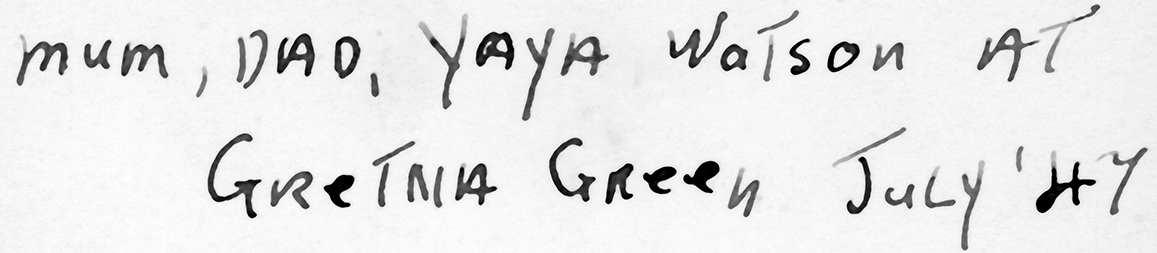 Mum, DAD, YAYA WATSON AT
GRETNA GREEN JULY '47